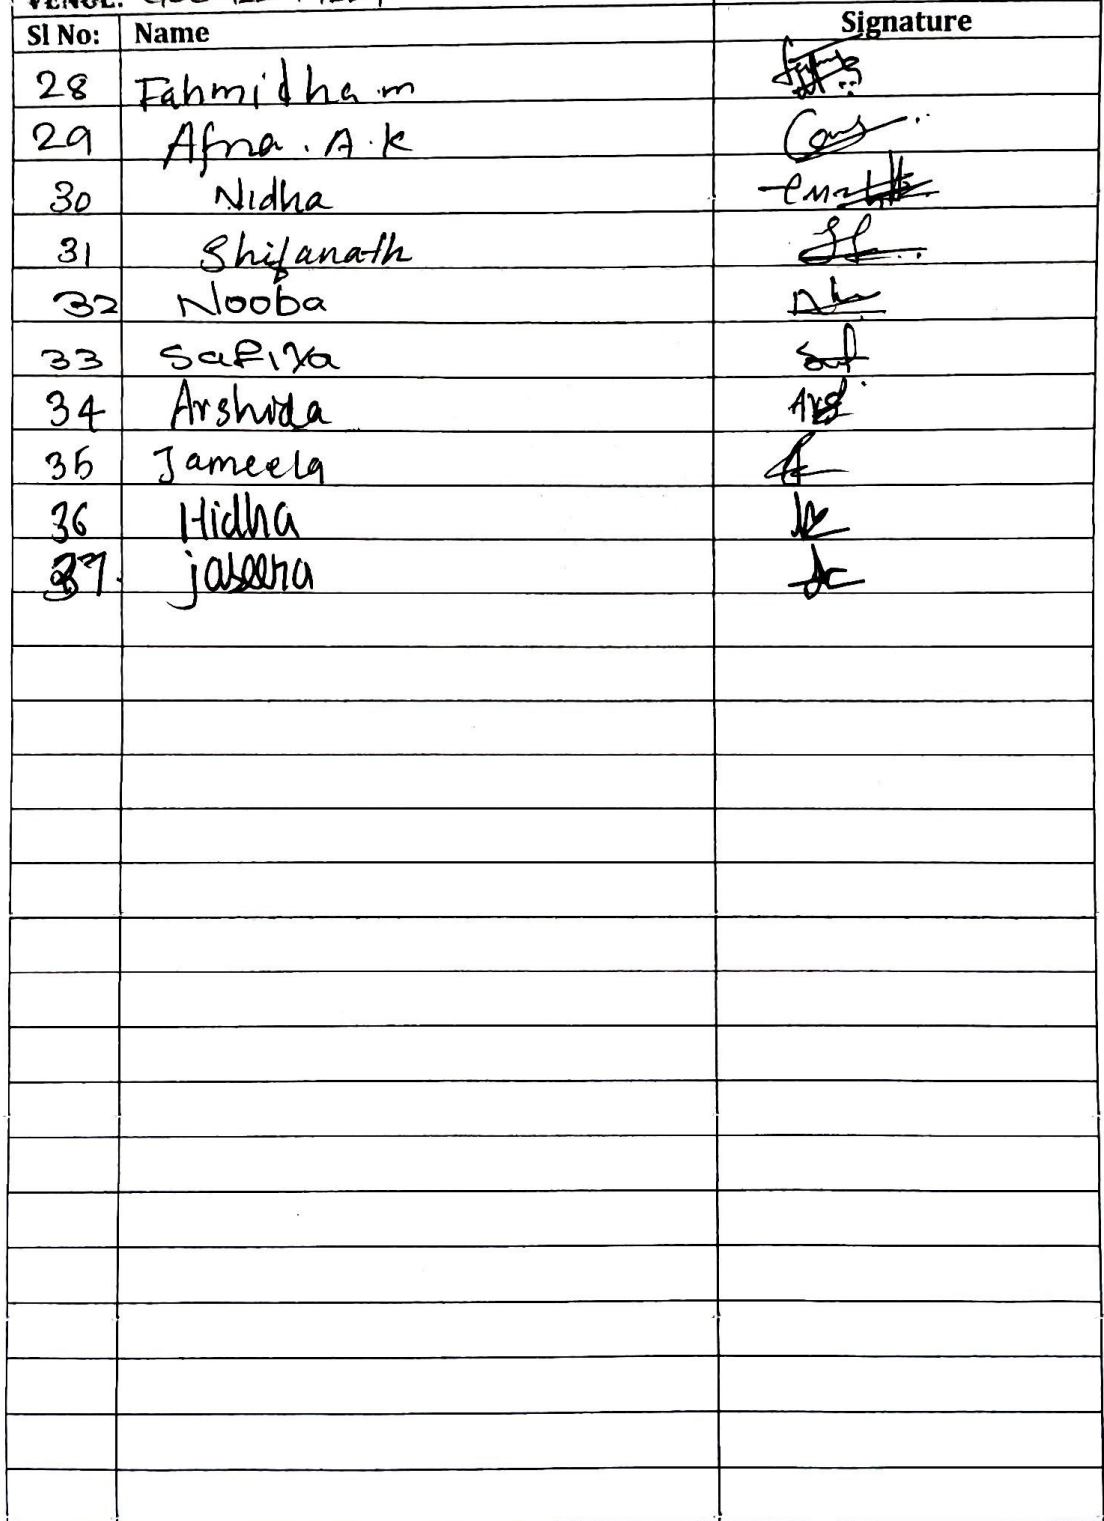 VENUE:
Sl No: Name Signature
28 Fahmidha m
29 Afna . A . K
30 Nidha
31 Shifanath
32 Nooba
33 SaFiYa
34 Arshida
35 Jameela
36 Hidha
37. jaseera